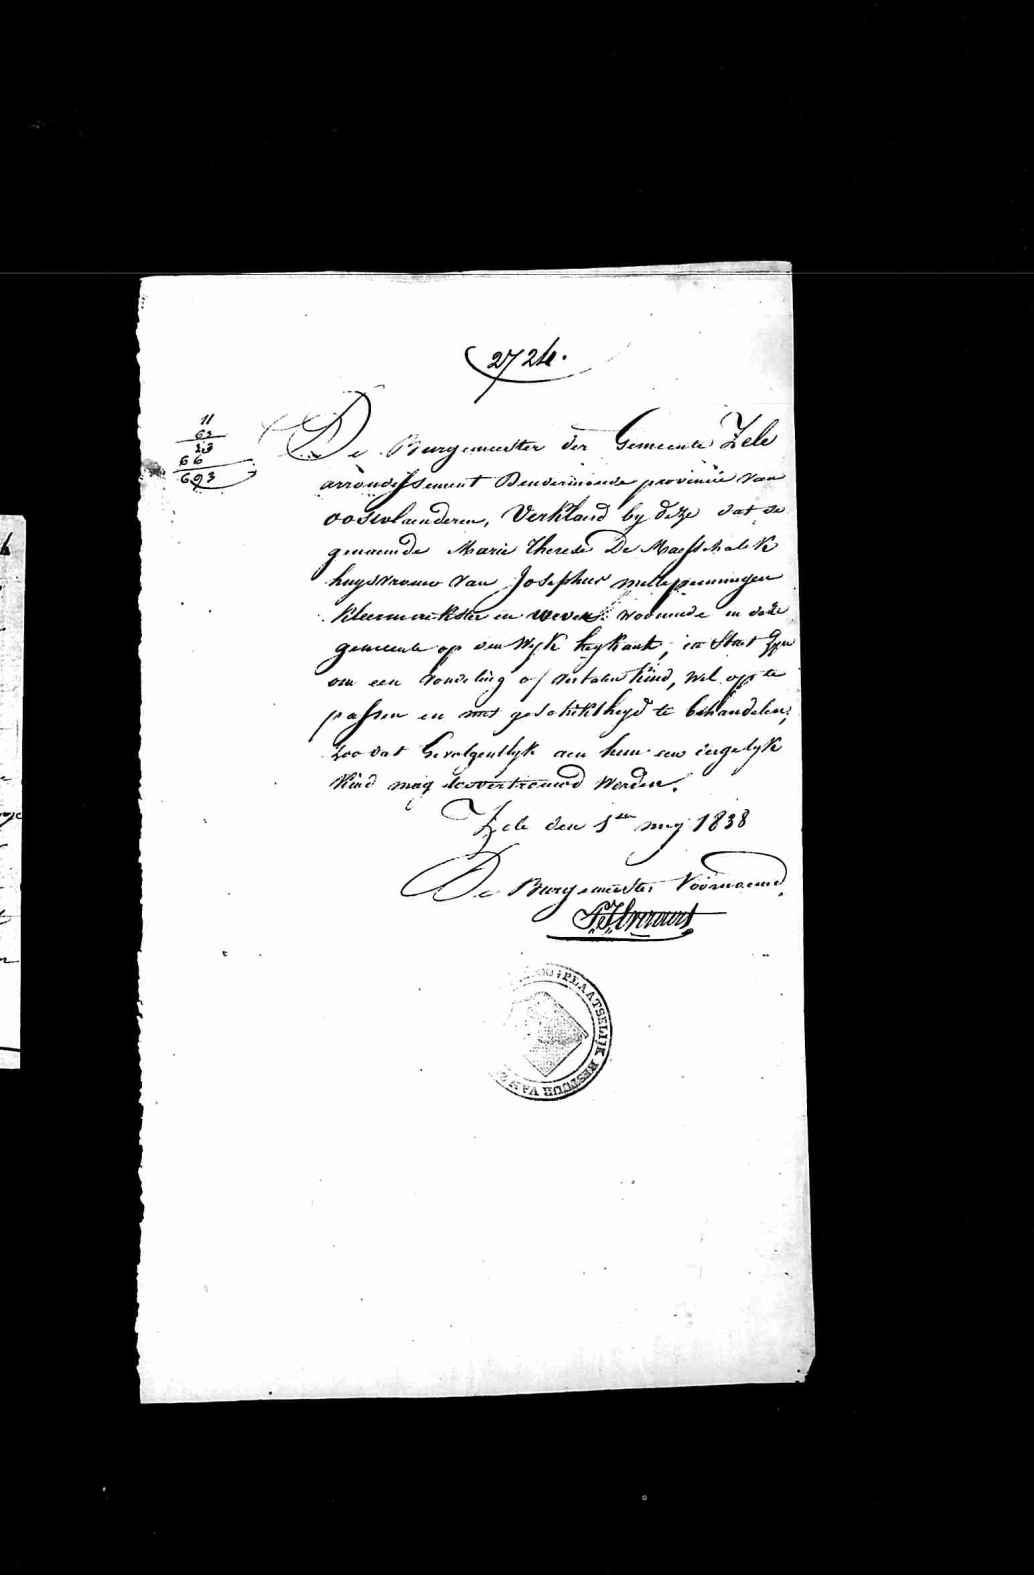 2724.
11
62
23
66
693
De Burgemeester der Gemeente Zele
arrondissement Dendermonde provincie van
oostvlaenderen, Verklaerd by deze dat de
genaemde Marie Therese De Maesschalck
huysvrouw van Josephus mellepenningen
kleermaekster en wever woonende in deze
gemeente op den Wyk heykant, in Staet zyn
om een vondeling of verlaten kind, wel op te
passen en met geschiktheyd te behandelen;
zoo dat gevolgentlyk aen hun een iergelyk
kind mag toevertrouwd worden.
Zele den 1en mey 1838
De Burgemeester Voornoemd,
PLAATSELIJK BESTUUR VAN